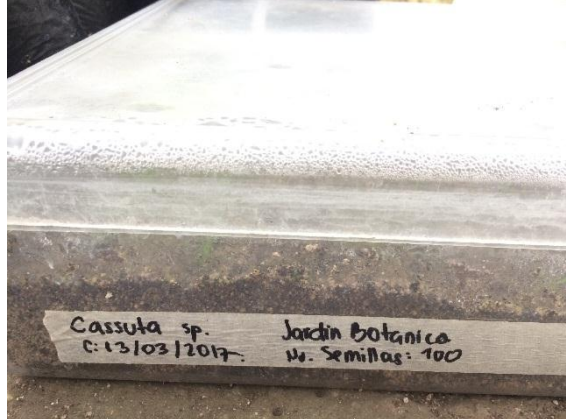 Cassuta sp. Jardin Botanico
C: 13/03/2017 No. Semillas: 100